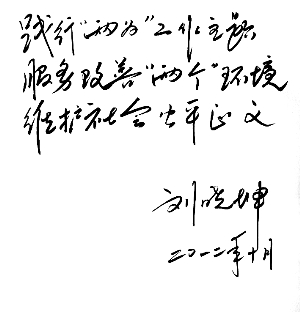 践行"两为"工作主题
服务改善"两个"环境
维护社会公平正义
刘晓坤
二〇一二年十月